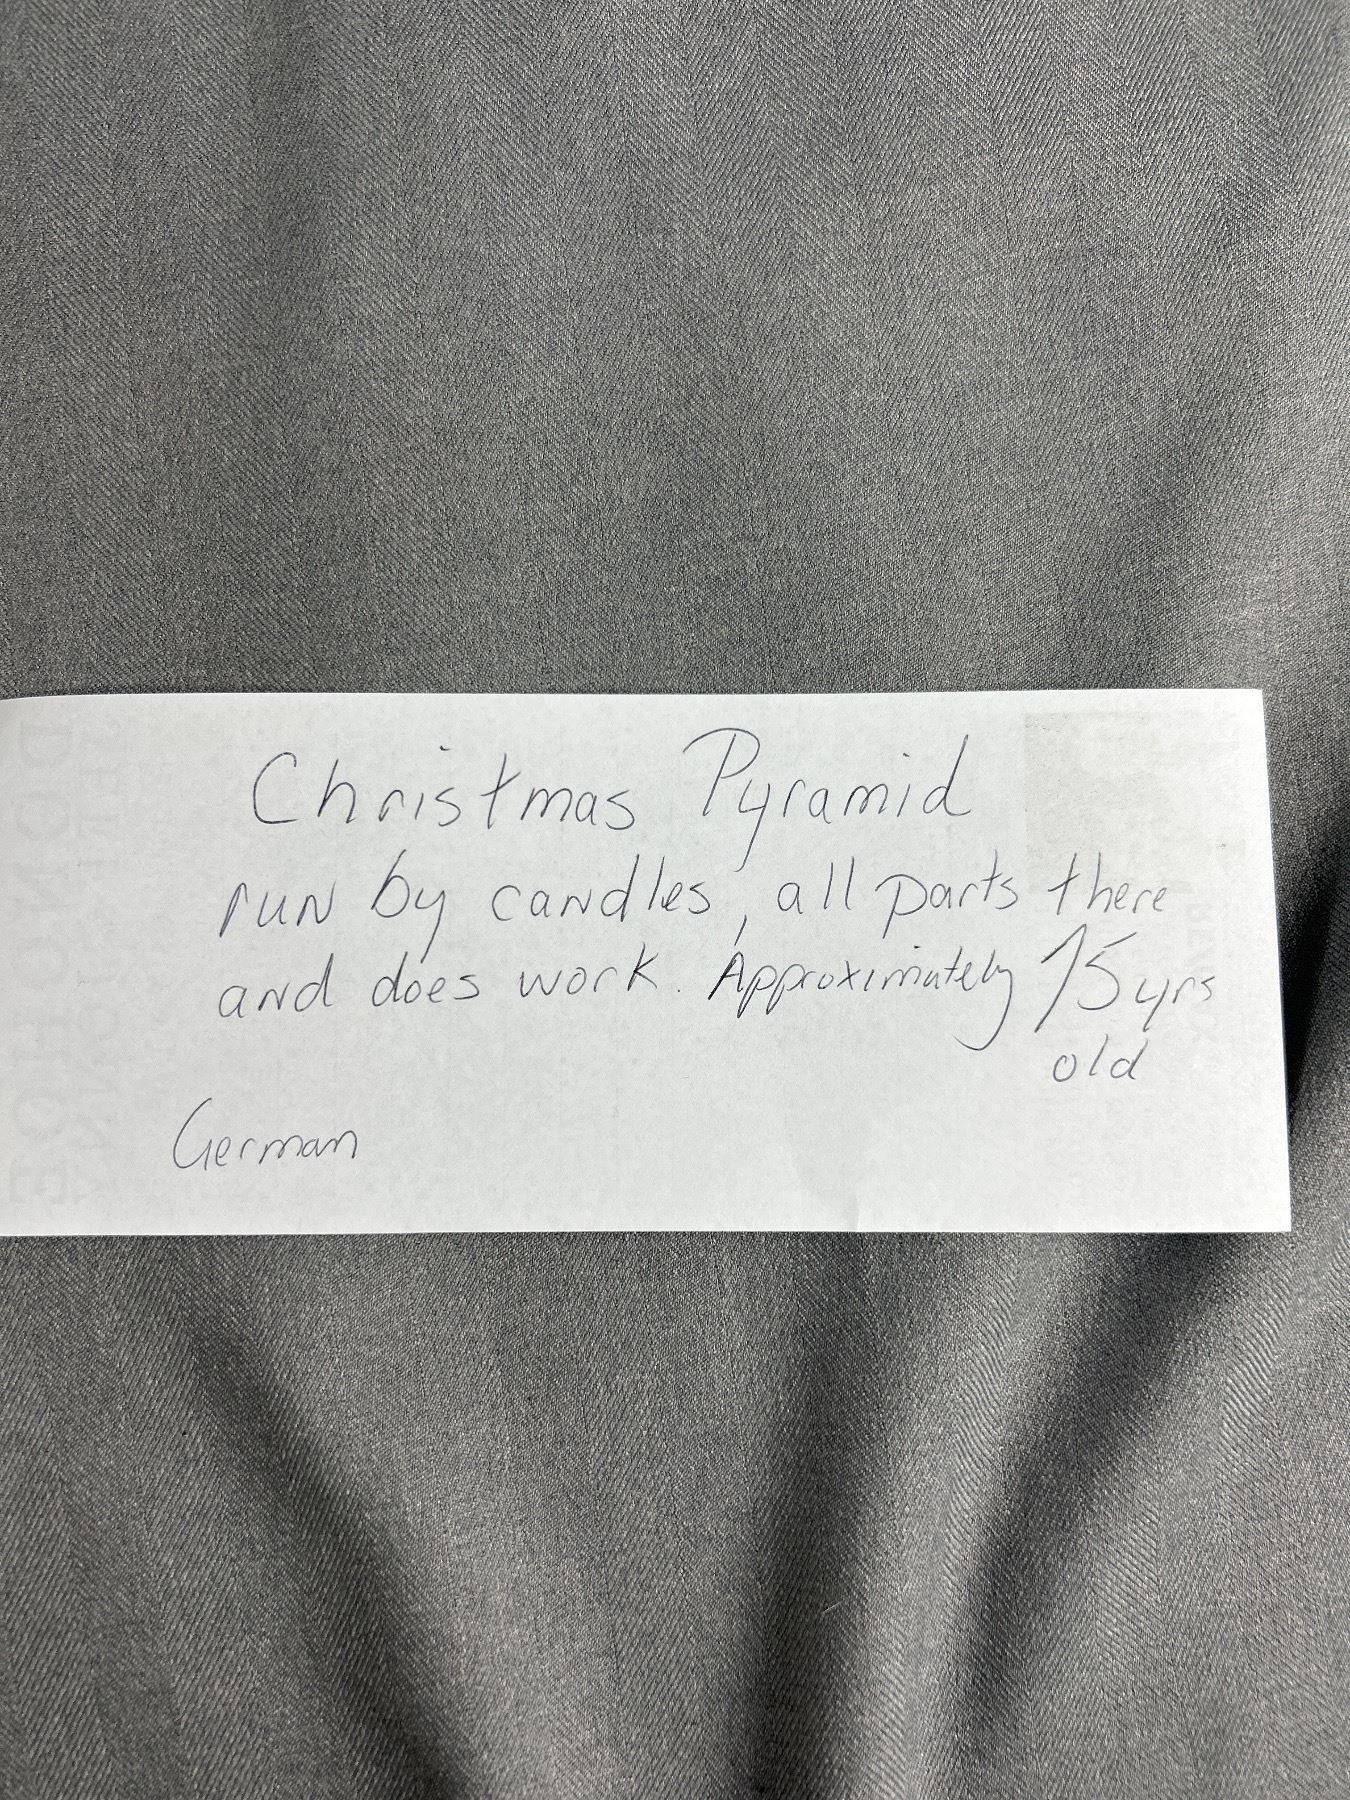 Christmas Pyramid
run by candles, all parts there
and does work. Approximately 75 yrs
old
German